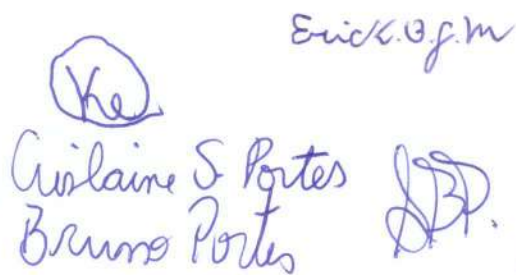 Erick.O.g.m
Ke
Gislaine S. Portes
Bruno Portes
SBP.